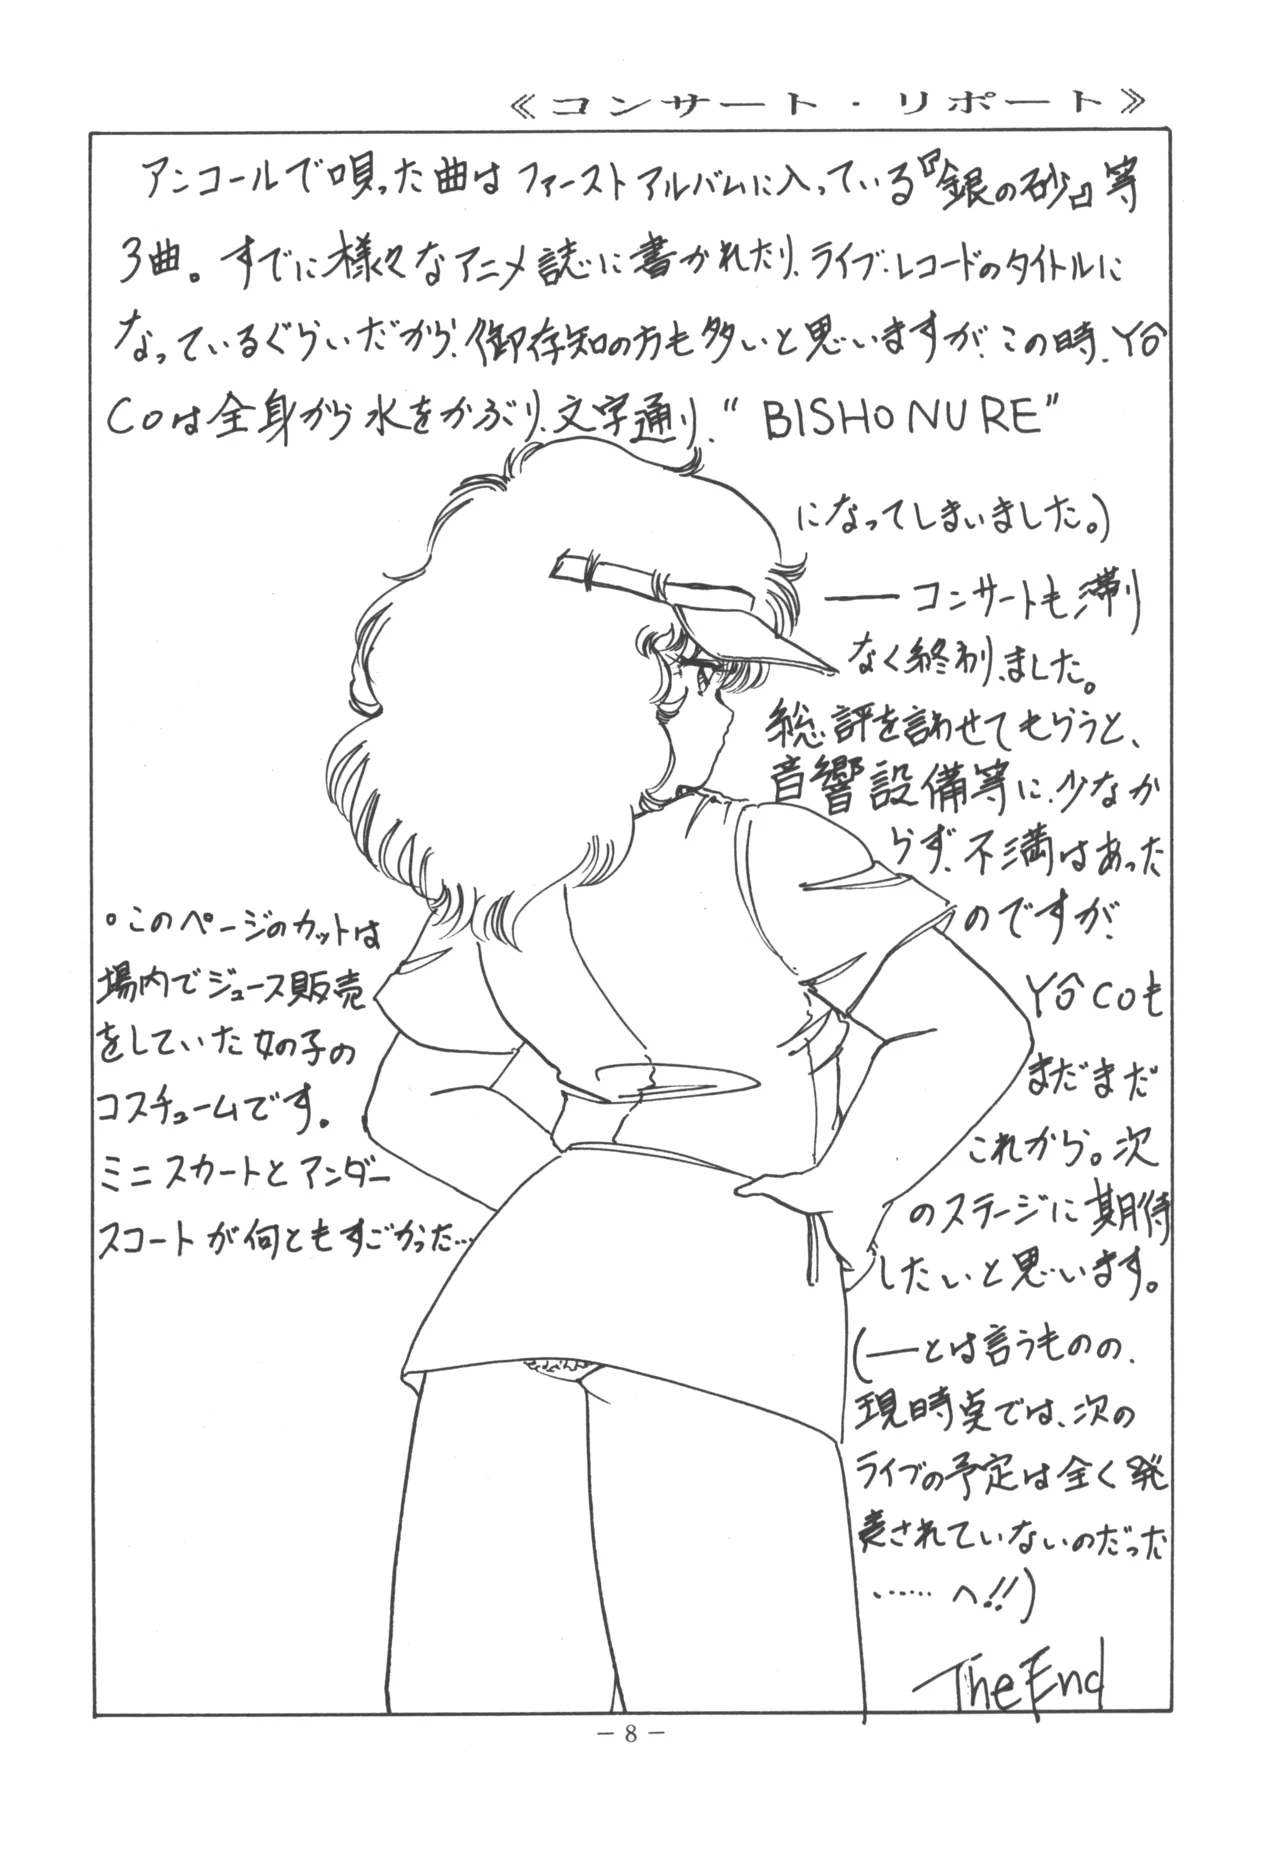 《コンサート・リポート》
アンコールで唄った曲はファーストアルバムに入っている『銀の砂』等
3曲。すでに様々なアニメ誌に書かれたり、ライブ・レコードのタイトルに
なっているぐらいだから、御存知の方も多いと思いますが、この時、YŌ
COは全身から水をかぶり、文字通り、“BISHONURE”
になってしまいました。)
――コンサートも滞り
なく終わりました。
総評を言わせてもらうと、
音響設備等に、少なか
らず、不満はあった
のですが、
YŌCOも
まだまだ
これから。次
のステージに期待
したいと思います。
(――とは言うものの、
現時点では、次の
ライブの予定は全く発
表されていないのだった
……へ!!)
The End
○このページのカットは
場内でジュース販売
をしていた女の子の
コスチュームです。
ミニスカートとアンダー
スコートが何ともすごかった…
－8－